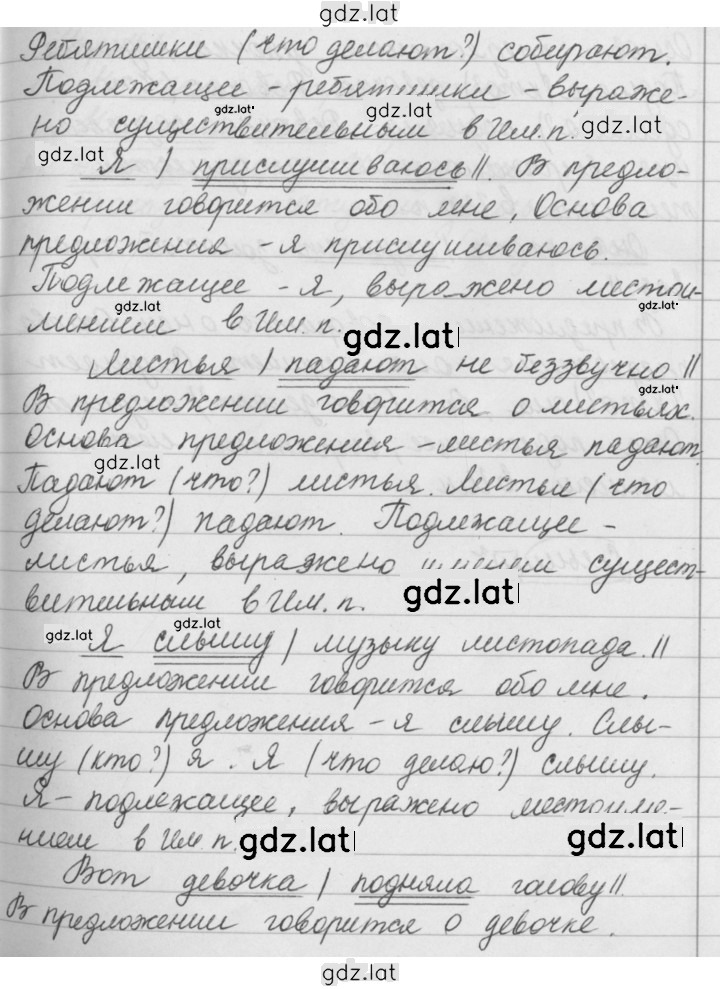 gdz.lat
Ребятишки (что делают?) собирают.
Подлежащее - ребятишки - выраже-
gdz.lat gdz.lat
но существительным в Им.п.
gdz.lat gdz.lat
Я | прислушиваюсь||. В предло-
жении говорится обо мне. Основа
предложения - я прислушиваюсь.
Подлежащее - я, выражено местои-
gdz.lat gdz.lat
мением в Им.п. gdz.lat
Листья | падают не беззвучно||
gdz.lat
В предложении говорится о листьях.
Основа предложения - листья падают.
gdz.lat
Падают (что?) листья. Листья (что
делают?) падают. Подлежащее -
листья, выражено именем сущест-
вительным в Им.п. gdz.lat
gdz.lat gdz.lat
Я слышу | музыку листопада.||
В предложении говорится обо мне.
Основа предложения - я слышу. Слы-
шу (кто?) я. Я (что делаю?) слышу.
Я - подлежащее, выражено местоиме-
нием в Им.п. gdz.lat gdz.lat
Вот девочка | подняла голову||.
В предложении говорится о девочке.
gdz.lat